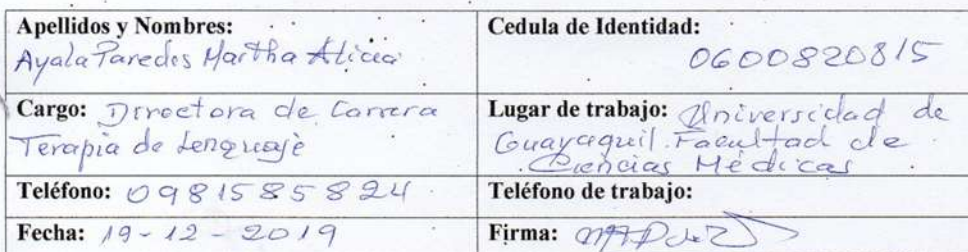 Apellidos y Nombres:
Ayala Paredes Martha Alicia
Cedula de Identidad:
0600820815
Cargo: Directora de Carrera
Terapia de Lenguaje
Lugar de trabajo: Universidad de
Guayaquil. Facultad de
Ciencias Médicas
Teléfono: 0981585824
Teléfono de trabajo:
Fecha: 19-12-2019
Firma: